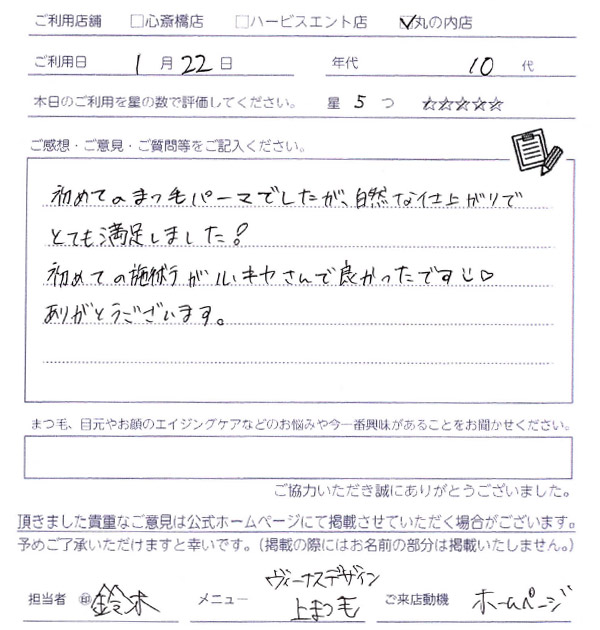 ご利用店舗 □心斎橋店 □ハービスエント店 ☑丸の内店
ご利用日 1月22日 年代 10代
本日のご利用を星の数で評価してください。 星 5 つ ☆☆☆☆☆
ご感想・ご意見・ご質問等をご記入ください。
初めてのまつ毛パーマでしたが、自然な仕上がりで
とても満足しました！
初めての施術がルキヤさんで良かったです♡
ありがとうございます。
まつ毛、目元やお顔のエイジングケアなどのお悩みや今一番興味があることをお聞かせください。
ご協力いただき誠にありがとうございました。
頂きました貴重なご意見は公式ホームページにて掲載させていただく場合がございます。
予めご了承いただけますと幸いです。（掲載の際にはお名前の部分は掲載いたしません。）
担当者 ㊞ 鈴木 メニュー ヴィーナスデザイン 上まつ毛 ご来店動機 ホームページ